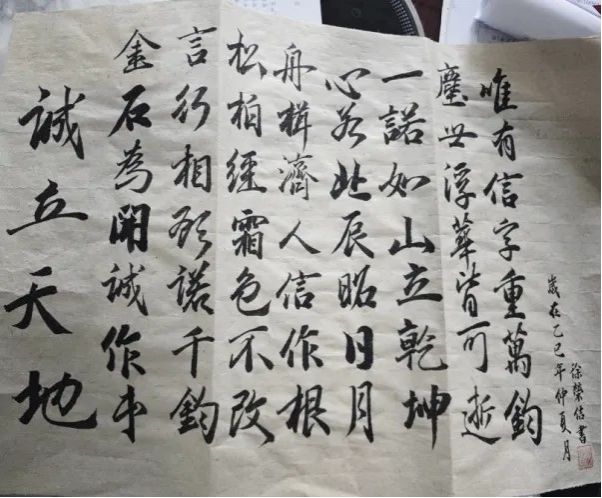 誠立天地
金石為開誠作本
言行相顧諾千鈞
松柏經霜色不改
舟楫濟人信作根
心若北辰昭日月
一諾如山立乾坤
塵世浮華皆可逝
唯有信字重萬鈞
歲在乙巳年仲夏月
徐榮書